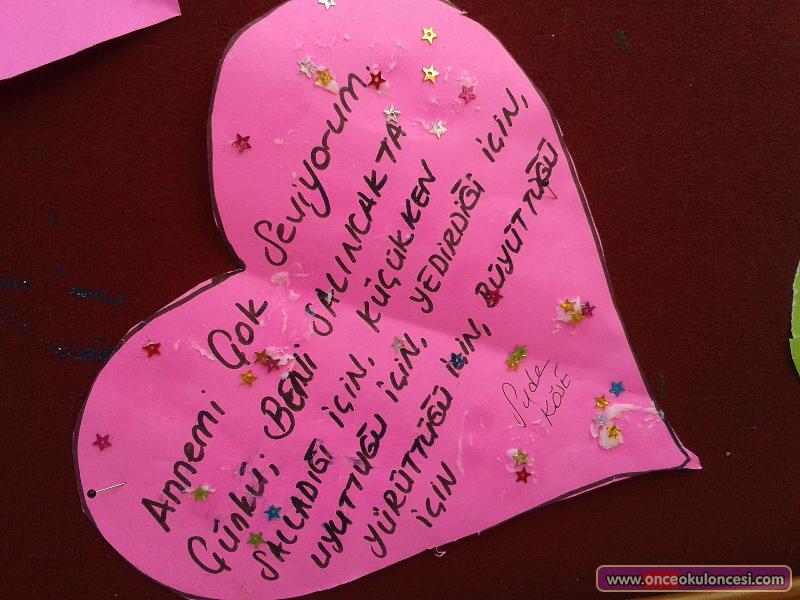 Annemi Çok Seviyorum.
Çünkü; BENİ SALINCAKTA
SALLADIĞI İÇİN, KÜÇÜKKEN
UYUTTUĞU İÇİN, YEDİRDİĞİ İÇİN,
YÜRÜTTÜĞÜ İÇİN, BÜYÜTTÜĞÜ
İÇİN
Sude
KÖSE
www.onceokuloncesi.com